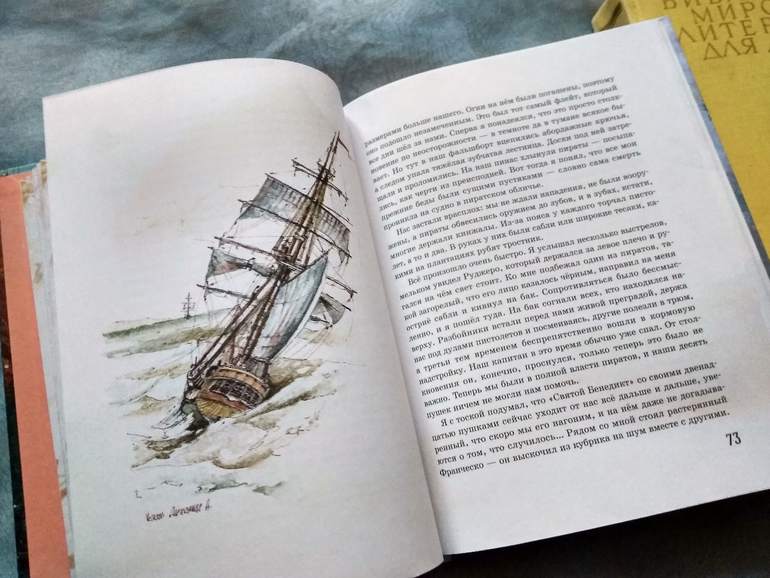 размерами больше нашего. Огни на нём были погашены, поэтому
оно подошло незамеченным. Это был тот самый флейт, который
все дни шёл за нами. Сперва я понадеялся, что это просто столк-
новение по неосторожности — в темноте да в тумане всякое бы-
вает. Но тут в наш фальшборт вцепились абордажные крючья,
а следом упала тяжёлая зубчатая лестница. Доски под ней затре-
щали и проломились. На наш пинас хлынули пираты — посыпа-
лись, как черти из преисподней. Вот тогда я понял, что все мои
прежние беды были сущими пустяками — словно сама смерть
проникла на судно в пиратском обличье.
Нас застали врасплох: мы не ждали нападения, не были воору-
жены, а пираты обвесились оружием до зубов, и в зубах, кстати,
многие держали кинжалы. Из-за пояса у каждого торчал писто-
лет, а то и два. В руках у них были сабли или широкие тесаки, ка-
кими на плантациях рубят тростник.
Всё произошло очень быстро. Я услышал несколько выстрелов,
мельком увидел Руджеро, который держался за левое плечо и ру-
гался на чём свет стоит. Ко мне подбежал один из пиратов, та-
кой загорелый, что его лицо казалось чёрным, направил на меня
остриё сабли и кивнул на бак. Сопротивляться было бессмыс-
ленно, и я пошёл туда. На бак согнали всех, кто находился на-
верху. Разбойники встали перед нами живой преградой, держа
нас под дулами пистолетов и посмеиваясь, другие полезли в трюм,
а третьи тем временем беспрепятственно вошли в кормовую
надстройку. Наш капитан в это время обычно уже спал. От стол-
кновения он, конечно, проснулся, только теперь это было не
важно. Теперь мы были в полной власти пиратов, и наши десять
пушек ничем не могли нам помочь.
Я с тоской подумал, что «Святой Бенедикт» со своими двенад-
цатью пушками сейчас уходит от нас всё дальше и дальше, уве-
ренный, что скоро мы его нагоним, и на нём даже не догадыва-
ются о том, что случилось... Рядом со мной стоял растерянный
Франческо — он выскочил из кубрика на шум вместе с другими.
73
МИРО
ЛИТЕР
ДЛЯ